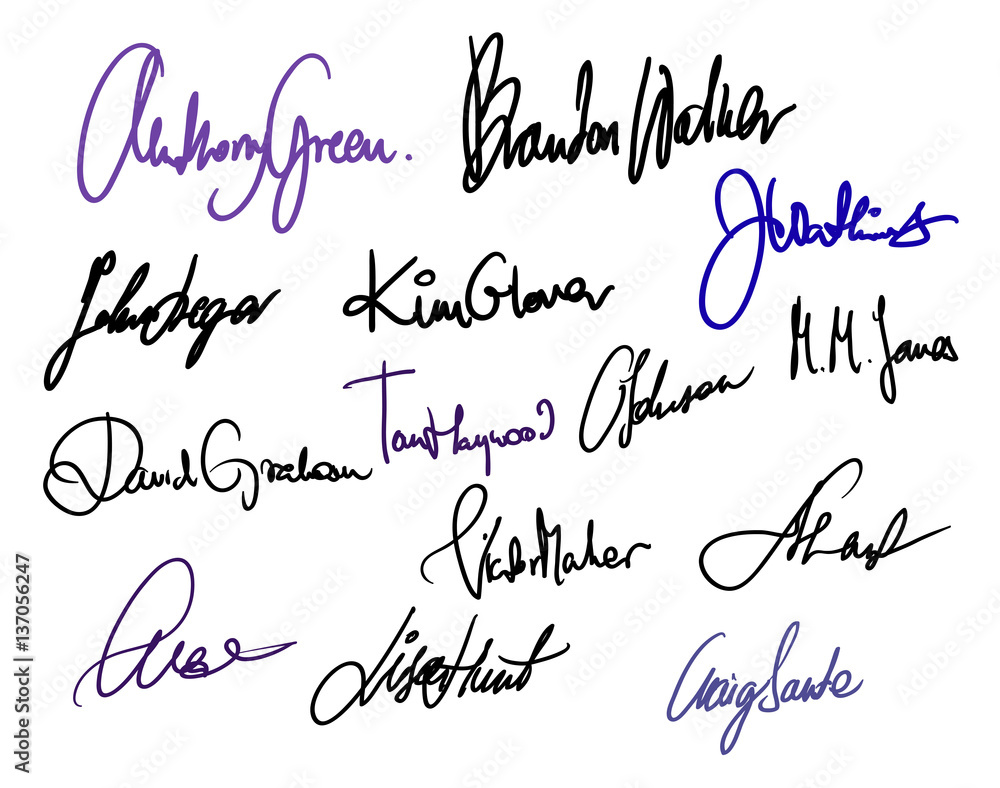 Anthony Green.
Brandon Walker
John Segar
Kim Glover
M.M. Jones
David Graham
Tom Haywood
A Johnson
Victor Maher
Lisa Hunt
Craig Sante
Adobe Stock | #137056247